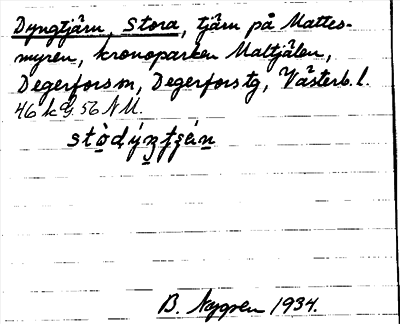 Dyngtjärn, Stora, tjärn på Mattes-
myren, kronoparken Maltjålen,
Degerfors sn, Degerfors tg, Västerb. l.
46 k G. 56 N M.
B. Nygren 1934.